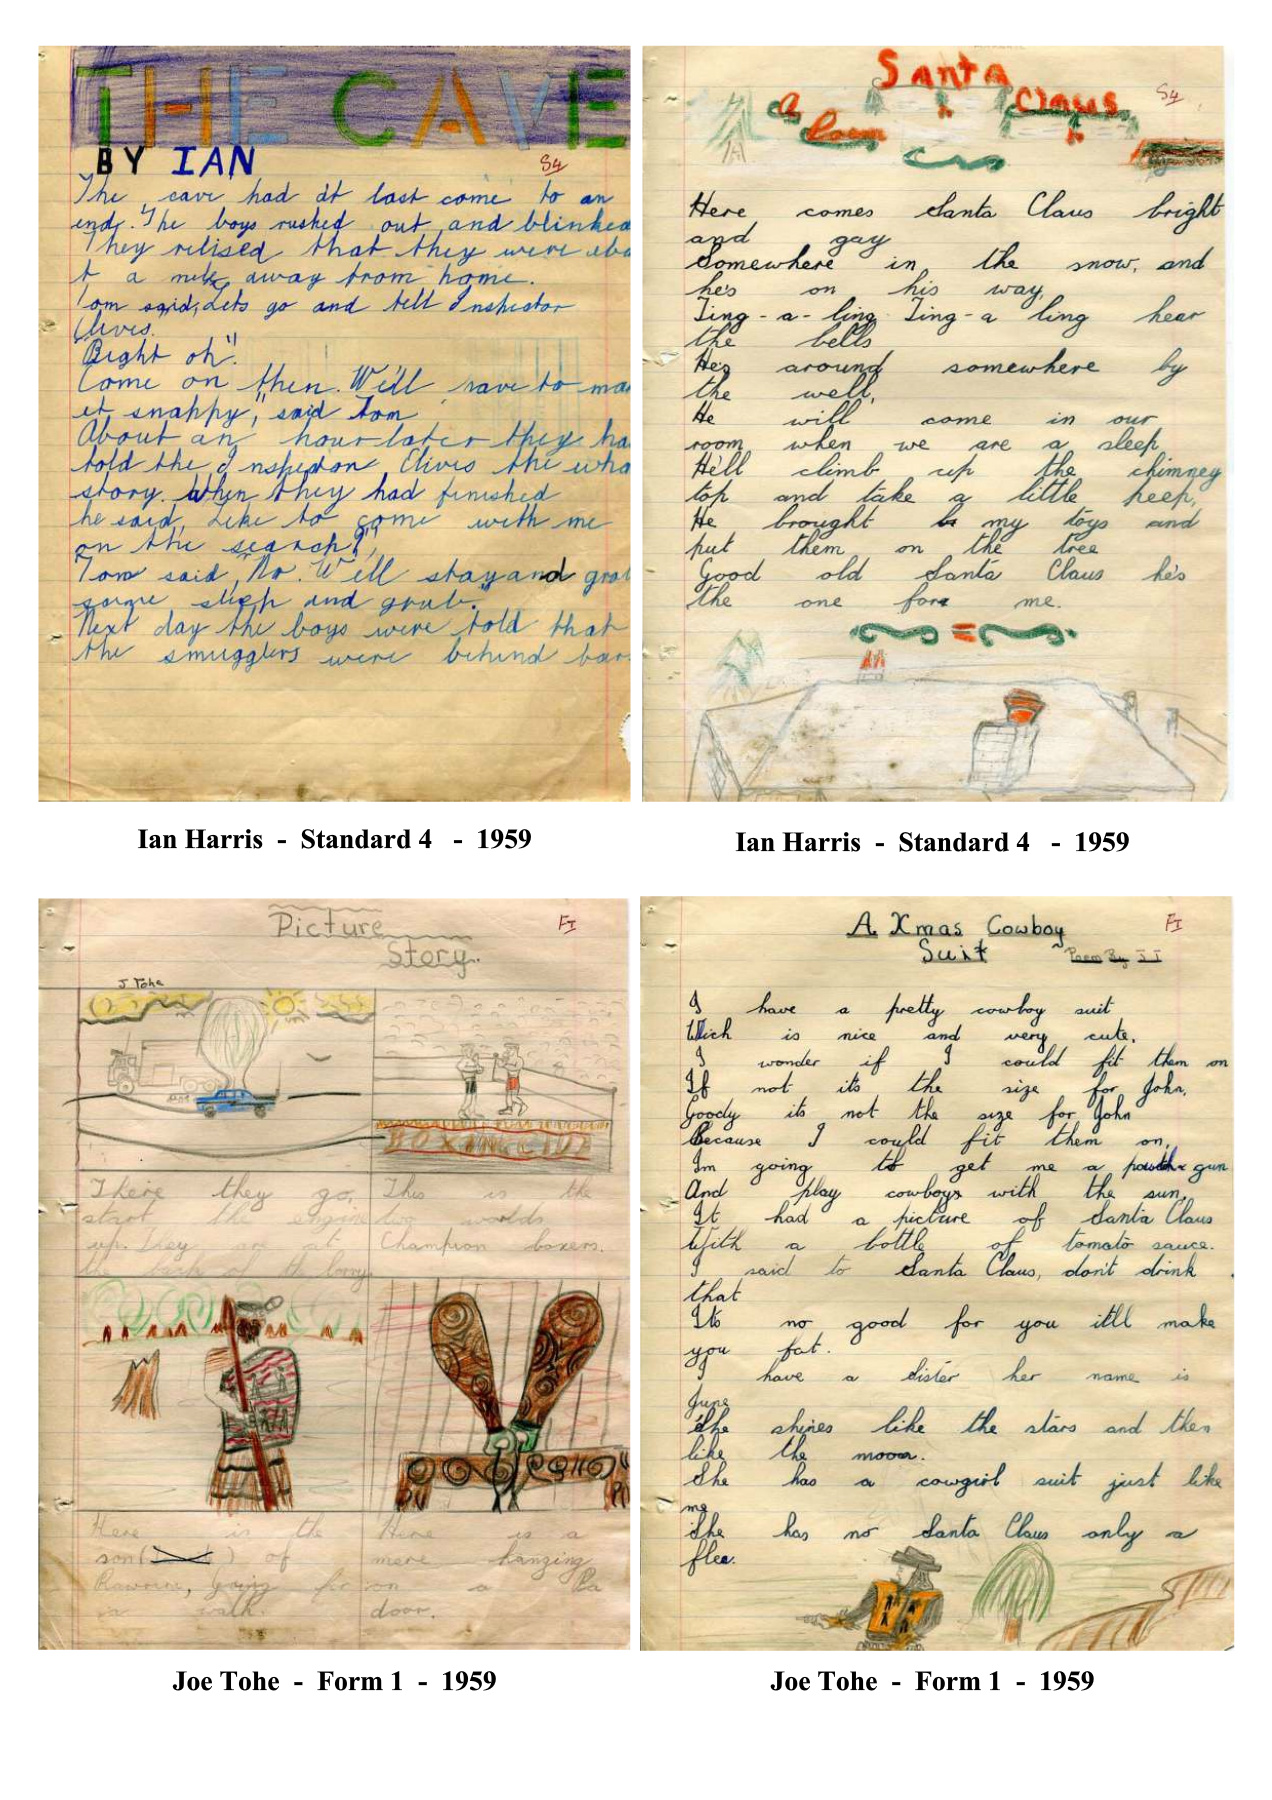 THE CAVE
BY IAN
S4
The cave had at last come to an
end. The boys rushed out and blinked
They relised that they were abo
t a mile away from home.
Tom said, Lets go and tell Inspector
Clives.
Right oh".
Come on then. We'll have to ma
it snappy," said Tom
About an hour later they ha
told the Inspector Clives the who
story. When they had finished
he said, Like to come with me
on the search?"
Tom said, "No. We'll stay and
some sleep and grub."
Next day the boys were told that
the smugglers were behind bar
Ian Harris - Standard 4 - 1959
Santa
A Claus
Poem
S4
Here comes Santa Claus bright
and gay
Somewhere in the snow, and
he's on his way,
Ting-a-ling Ting-a ling hear
the bells
He's around somewhere by
the well,
He will come in our
room when we are a sleep,
He'll climb up the chimney
top and take a little peep,
He brought my toys and
put them on the tree
Good old Santa Claus he's
the one for me.
Ian Harris - Standard 4 - 1959
Picture
Story.
F1
J Tohe
BOXING
There they go,
start the engine
up. They are at
the back of the lorry
This is the
two worlds
Champion boxers.
Here is the
son( ) of
Rawiri, going for
a walk.
Here is a
mere hanging
on a Pa
door.
Joe Tohe - Form 1 - 1959
A Xmas Cowboy
Suit
Poem By J T
F1
I have a pretty cowboy suit
Wich is nice and very cute.
I wonder if I could fit them on
If not its the size for John.
Goody its not the size for John
Because I could fit them on,
Im going to get me a gun
And play cowboys with the sun.
It had a picture of Santa Claus
With a bottle of tomato sauce.
I said to Santa Claus, don't drink
that
Its no good for you itll make
you fat.
I have a sister her name is
June
She shines like the stars and then
like the moon.
She has a cowgirl suit just like
me
She has no Santa Claus only a
flea.
Joe Tohe - Form 1 - 1959